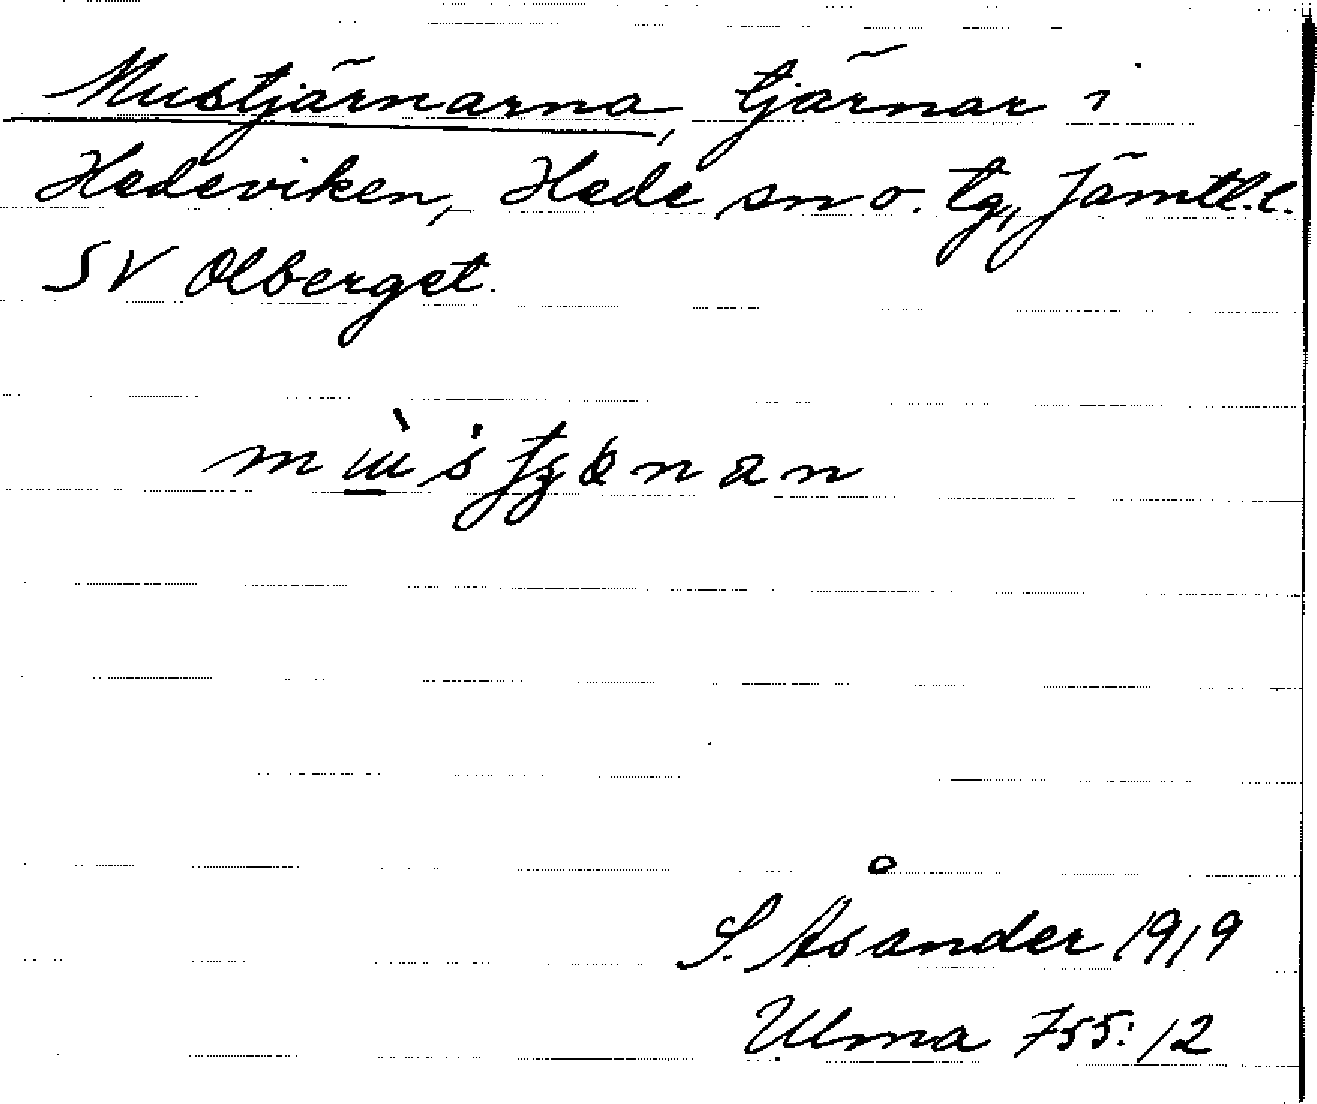 Mustjärnarna, tjärnar i
Hedeviken, Hede sn o. tg, Jämtl.l.
SV Olberget.
S. Åsander 1919
Ulma 755:12